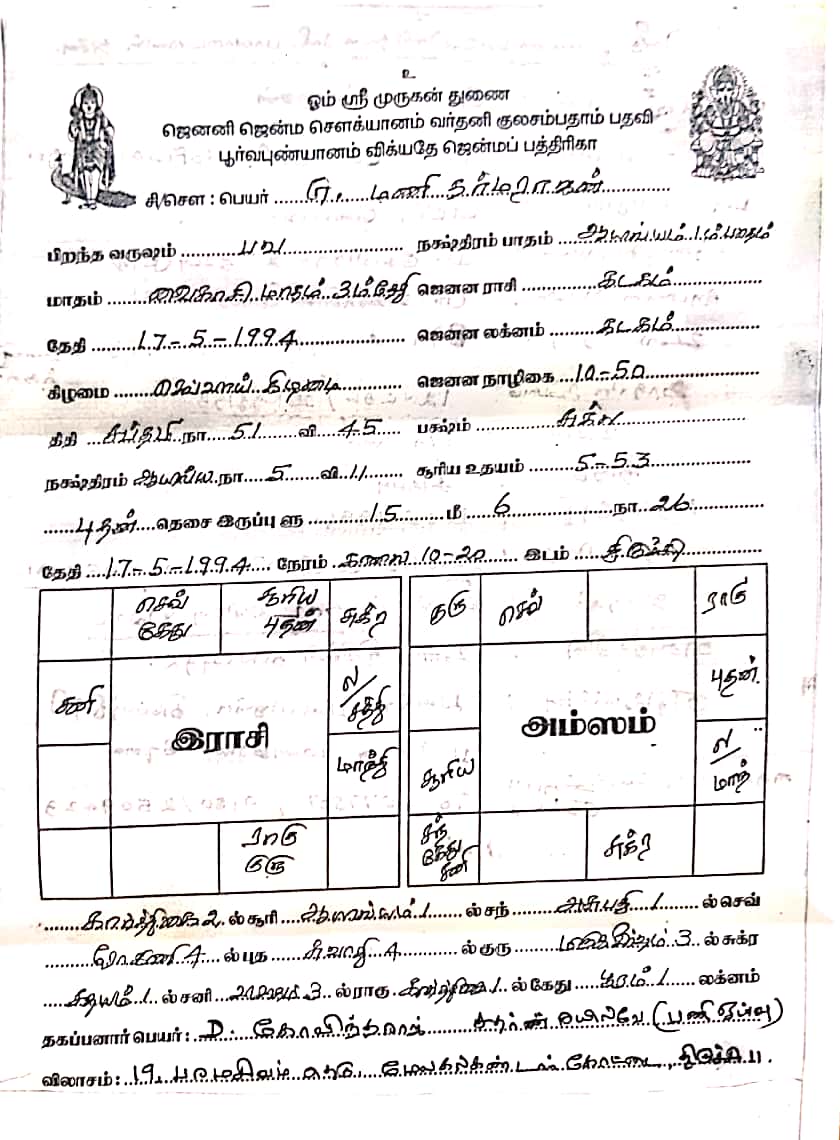 உ
ஓம் ஸ்ரீ முருகன் துணை
ஜெனனி ஜென்ம சௌக்யானம் வர்தனி குலசம்பதாம் பதவி
பூர்வபுண்யானம் விக்யதே ஜென்மப் பத்திரிகா
சி/சௌ : பெயர் ...... மணி தர்மராஜன்
பிறந்த வருஷம் ...... பவ ...... நசஷ்திரம் பாதம் ...... ஆயில்யம் 1ம் பாதம்
மாதம் ...... வைகாசி மாதம் 3ம்தேதி ஜெனன ராசி ...... கடகம்
தேதி ...... 17-5-1994 ...... ஜெனன லக்னம் ...... கடகம்
கிழமை ...... செவ்வாய் கிழமை ...... ஜெனன நாழிகை ...... 10-50
திதி ...... சப்தமி நா ...... 51 வி ...... 45 பக்ஷம் ...... சுக்ல
நசஷ்திரம் ஆயில்ய நா ...... 5 வி ...... 11 சூரிய உதயம் ...... 5-53
புதன் தெசை இருப்பு ளு ...... 15 மீ ...... 6 நா ...... 26
தேதி ...... 17-5-1994 நேரம் காலை 10-20 இடம் ...... திருச்சி
செவ் கேது
சூரிய புதன்
சுக்ர
குரு
செவ்
ராகு
சனி
ல/சந்தி
புதன்
இராசி
அம்ஸம்
மாந்தி
சூரிய
ல/மாந்
ராகு குரு
சந் கேது சனி
சுக்ர
கார்த்திகை 2 ல் சூரி ஆயில்யம் 1 ல் சந் அசுபதி 1 ல் செவ்
ரோகணி 4 ல் புத சுவாதி 4 ல் குரு 3 ல் சுக்ர
சதயம் 1 ல் சனி 3 ல் ராகு கார்த்திகை 1 ல் கேது பூரம் 1 லக்னம்
தகப்பனார் பெயர் : D. கோவிந்தராஜ் சதர்ன் ரயில்வே (பணி ஓய்வு)
விலாசம் : 19, பரமசிவம் தெரு, மேலகல்கண்டார் கோட்டை, திருச்சி 11.